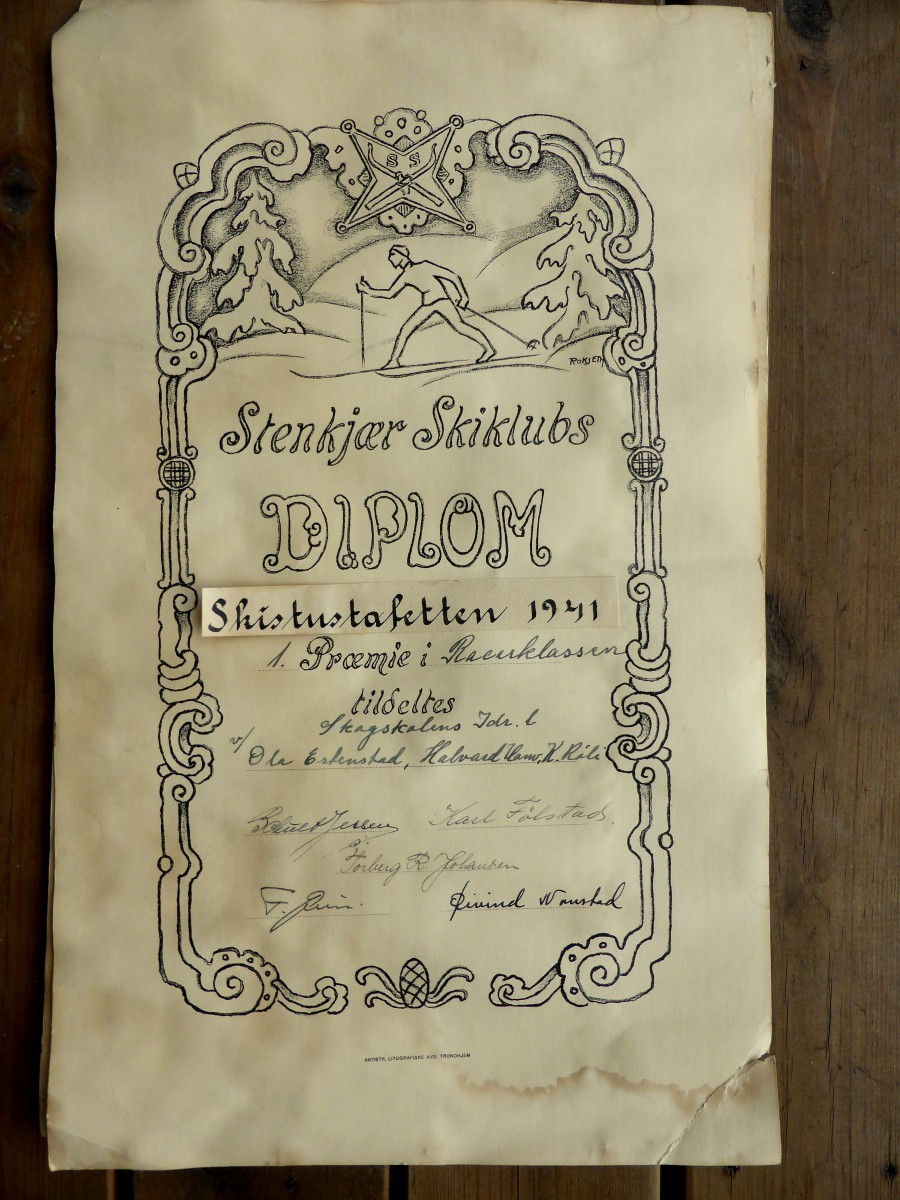 S S
ROKSETH
Stenkjær Skiklubs
DIPLOM
Skistustafetten 1941
1. Præmie i Racerklassen
tildeltes
Skogskolens Idr. l
v/ Ola Estenstad, Halvard Hanv, K. Röli
Jessen Karl Fölstad.
Torberg R. Johansen
F. Øivind Wanstad
AKTIETR. LITOGRAFISKE AVD. TRONDHJEM